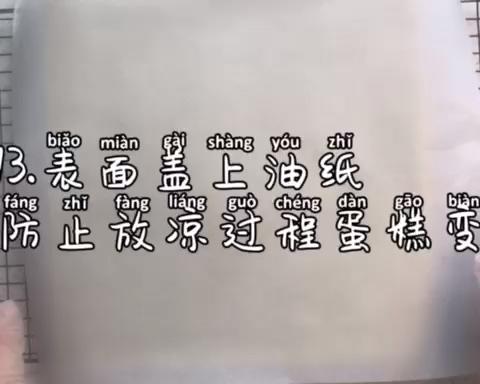 biǎo miàn gài shàng yóu zhǐ
13.表面盖上油纸
fáng zhǐ fàng liáng guò chéng dàn gāo biàn
防止放凉过程蛋糕变